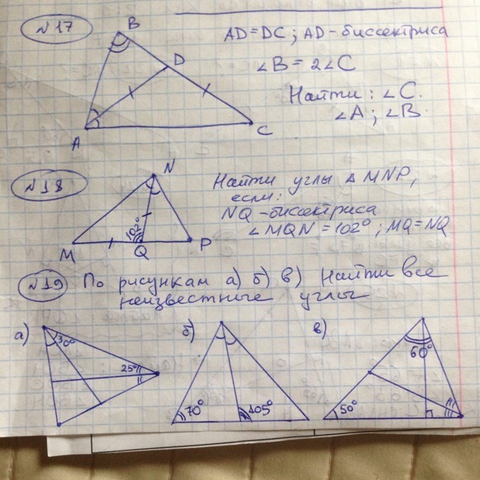 №17
B
D
A
C
AD=DC; AD-биссектриса
∠B = 2∠C
Найти: ∠C.
∠A; ∠B.
№18
N
M
Q
P
102°
Найти углы △ MNP,
если:
NQ-биссектриса
∠MQN = 102°; MQ=NQ
№19 По рисункам а) б) в) Найти все
неизвестные углы
а)
30°
25°
б)
70°
105°
в)
60°
50°